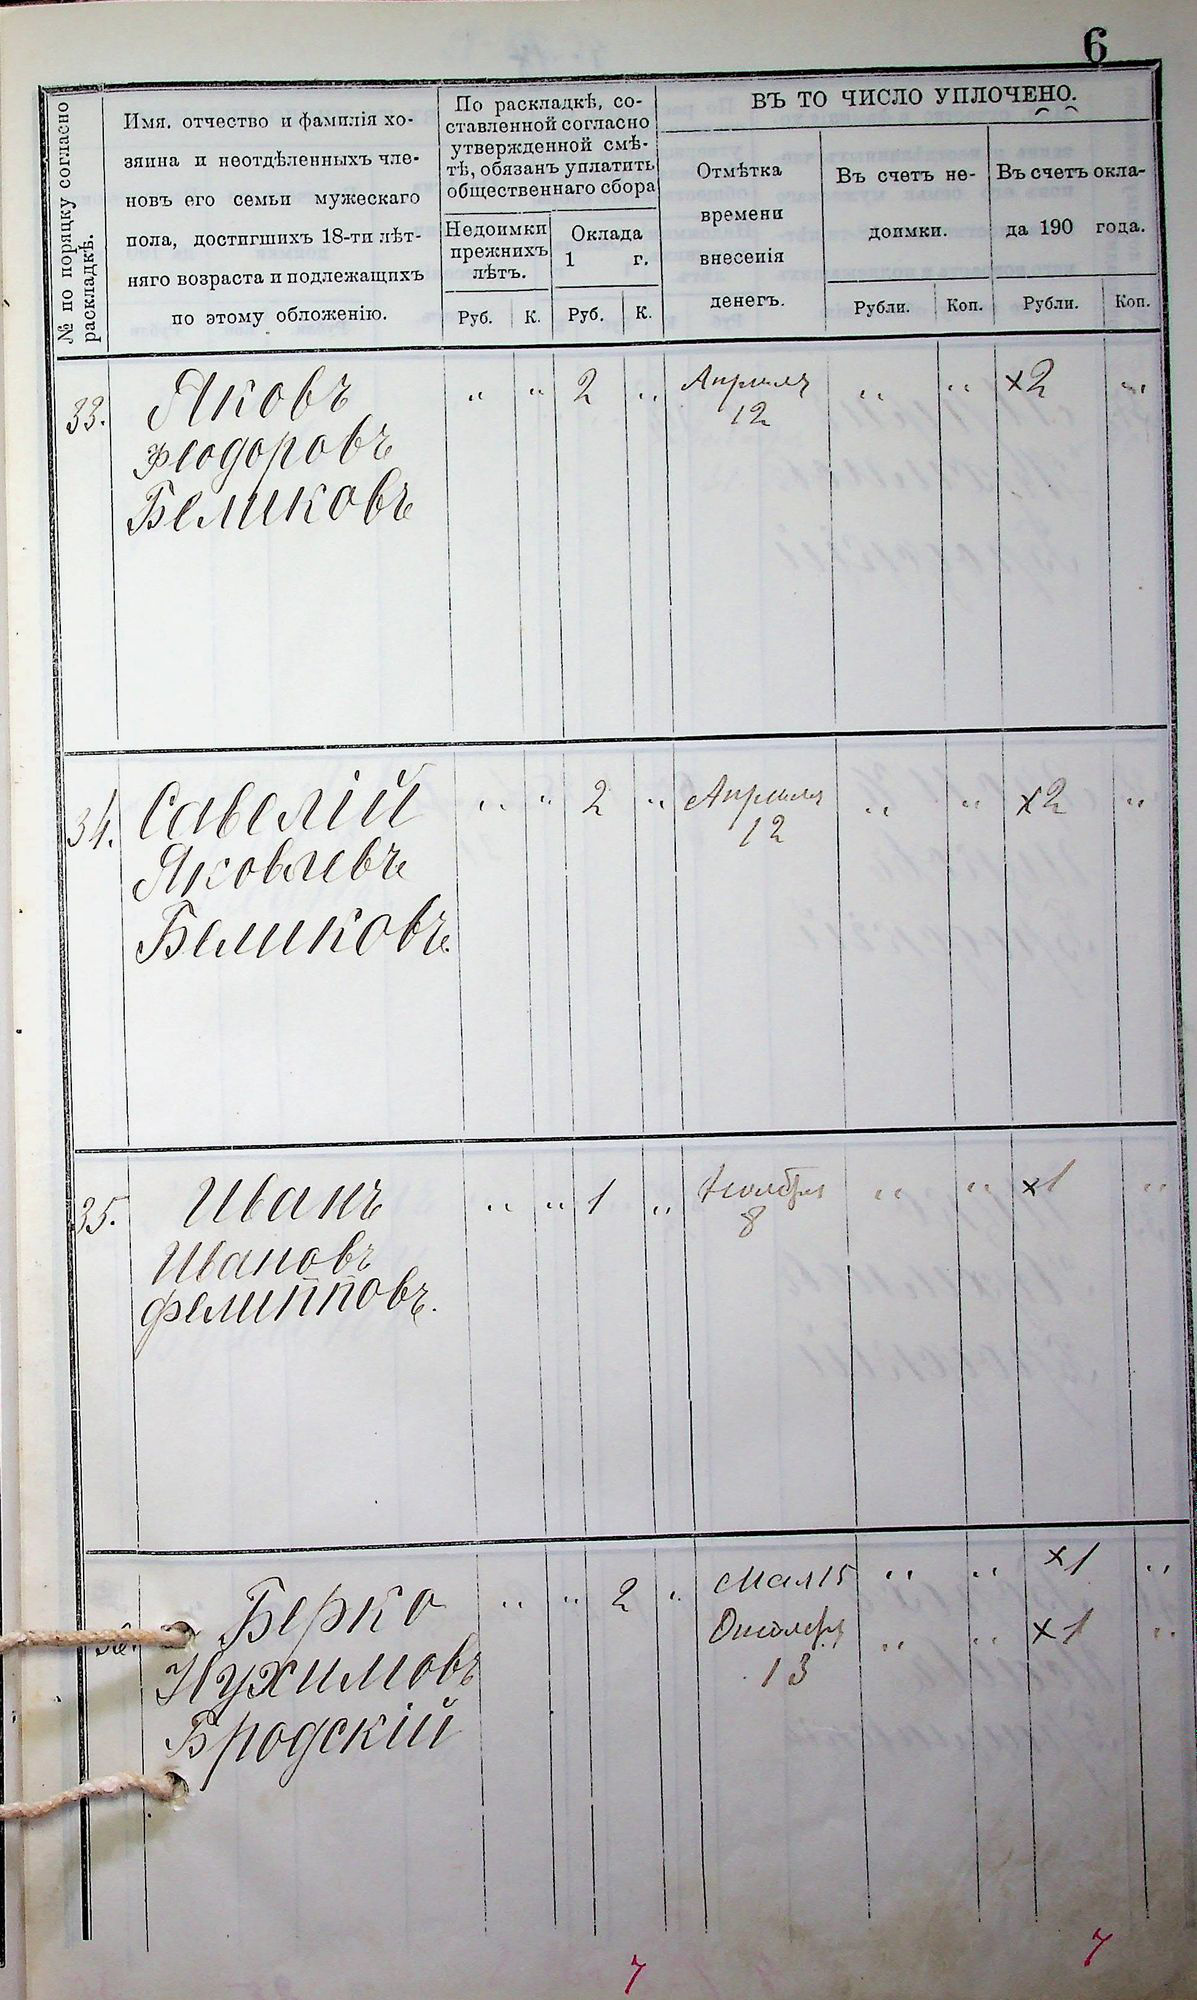 6
№ по порядку согласно
раскладкѣ.
Имя, отчество и фамилія хо-
зяина и неотдѣленныхъ чле-
новъ его семьи мужескаго
пола, достигшихъ 18-ти лѣт-
няго возраста и подлежащихъ
по этому обложенію.
По раскладкѣ, со-
ставленной согласно
утвержденной смѣ-
тѣ, обязанъ уплатить
общественнаго сбора
Недоимки
прежнихъ
лѣтъ.
Оклада
1 г.
Руб. К. Руб. К.
ВЪ ТО ЧИСЛО УПЛОЧЕНО.
Отмѣтка
времени
внесенія
денегъ.
Въ счетъ не-
доимки.
Въ счетъ окла-
да 190 года.
Рубли. Коп. Рубли. Коп.
33. Яковъ „ „ 2 „ Апрѣля „ „ ×2 „
12
Феодоровъ
Беликовъ
34. Савелій „ „ 2 „ Апрѣля „ „ ×2 „
12
Яковлевъ
Беликовъ.
35. Иванъ „ „ 1 „ Ноября „ „ ×1 „
8
Ивановъ
Фелипповъ.
36. Берко „ „ 2 „ Мая 15 „ „ ×1 „
Октября „ „ ×1 „
13
Нухимовъ
Бродскій
7 7